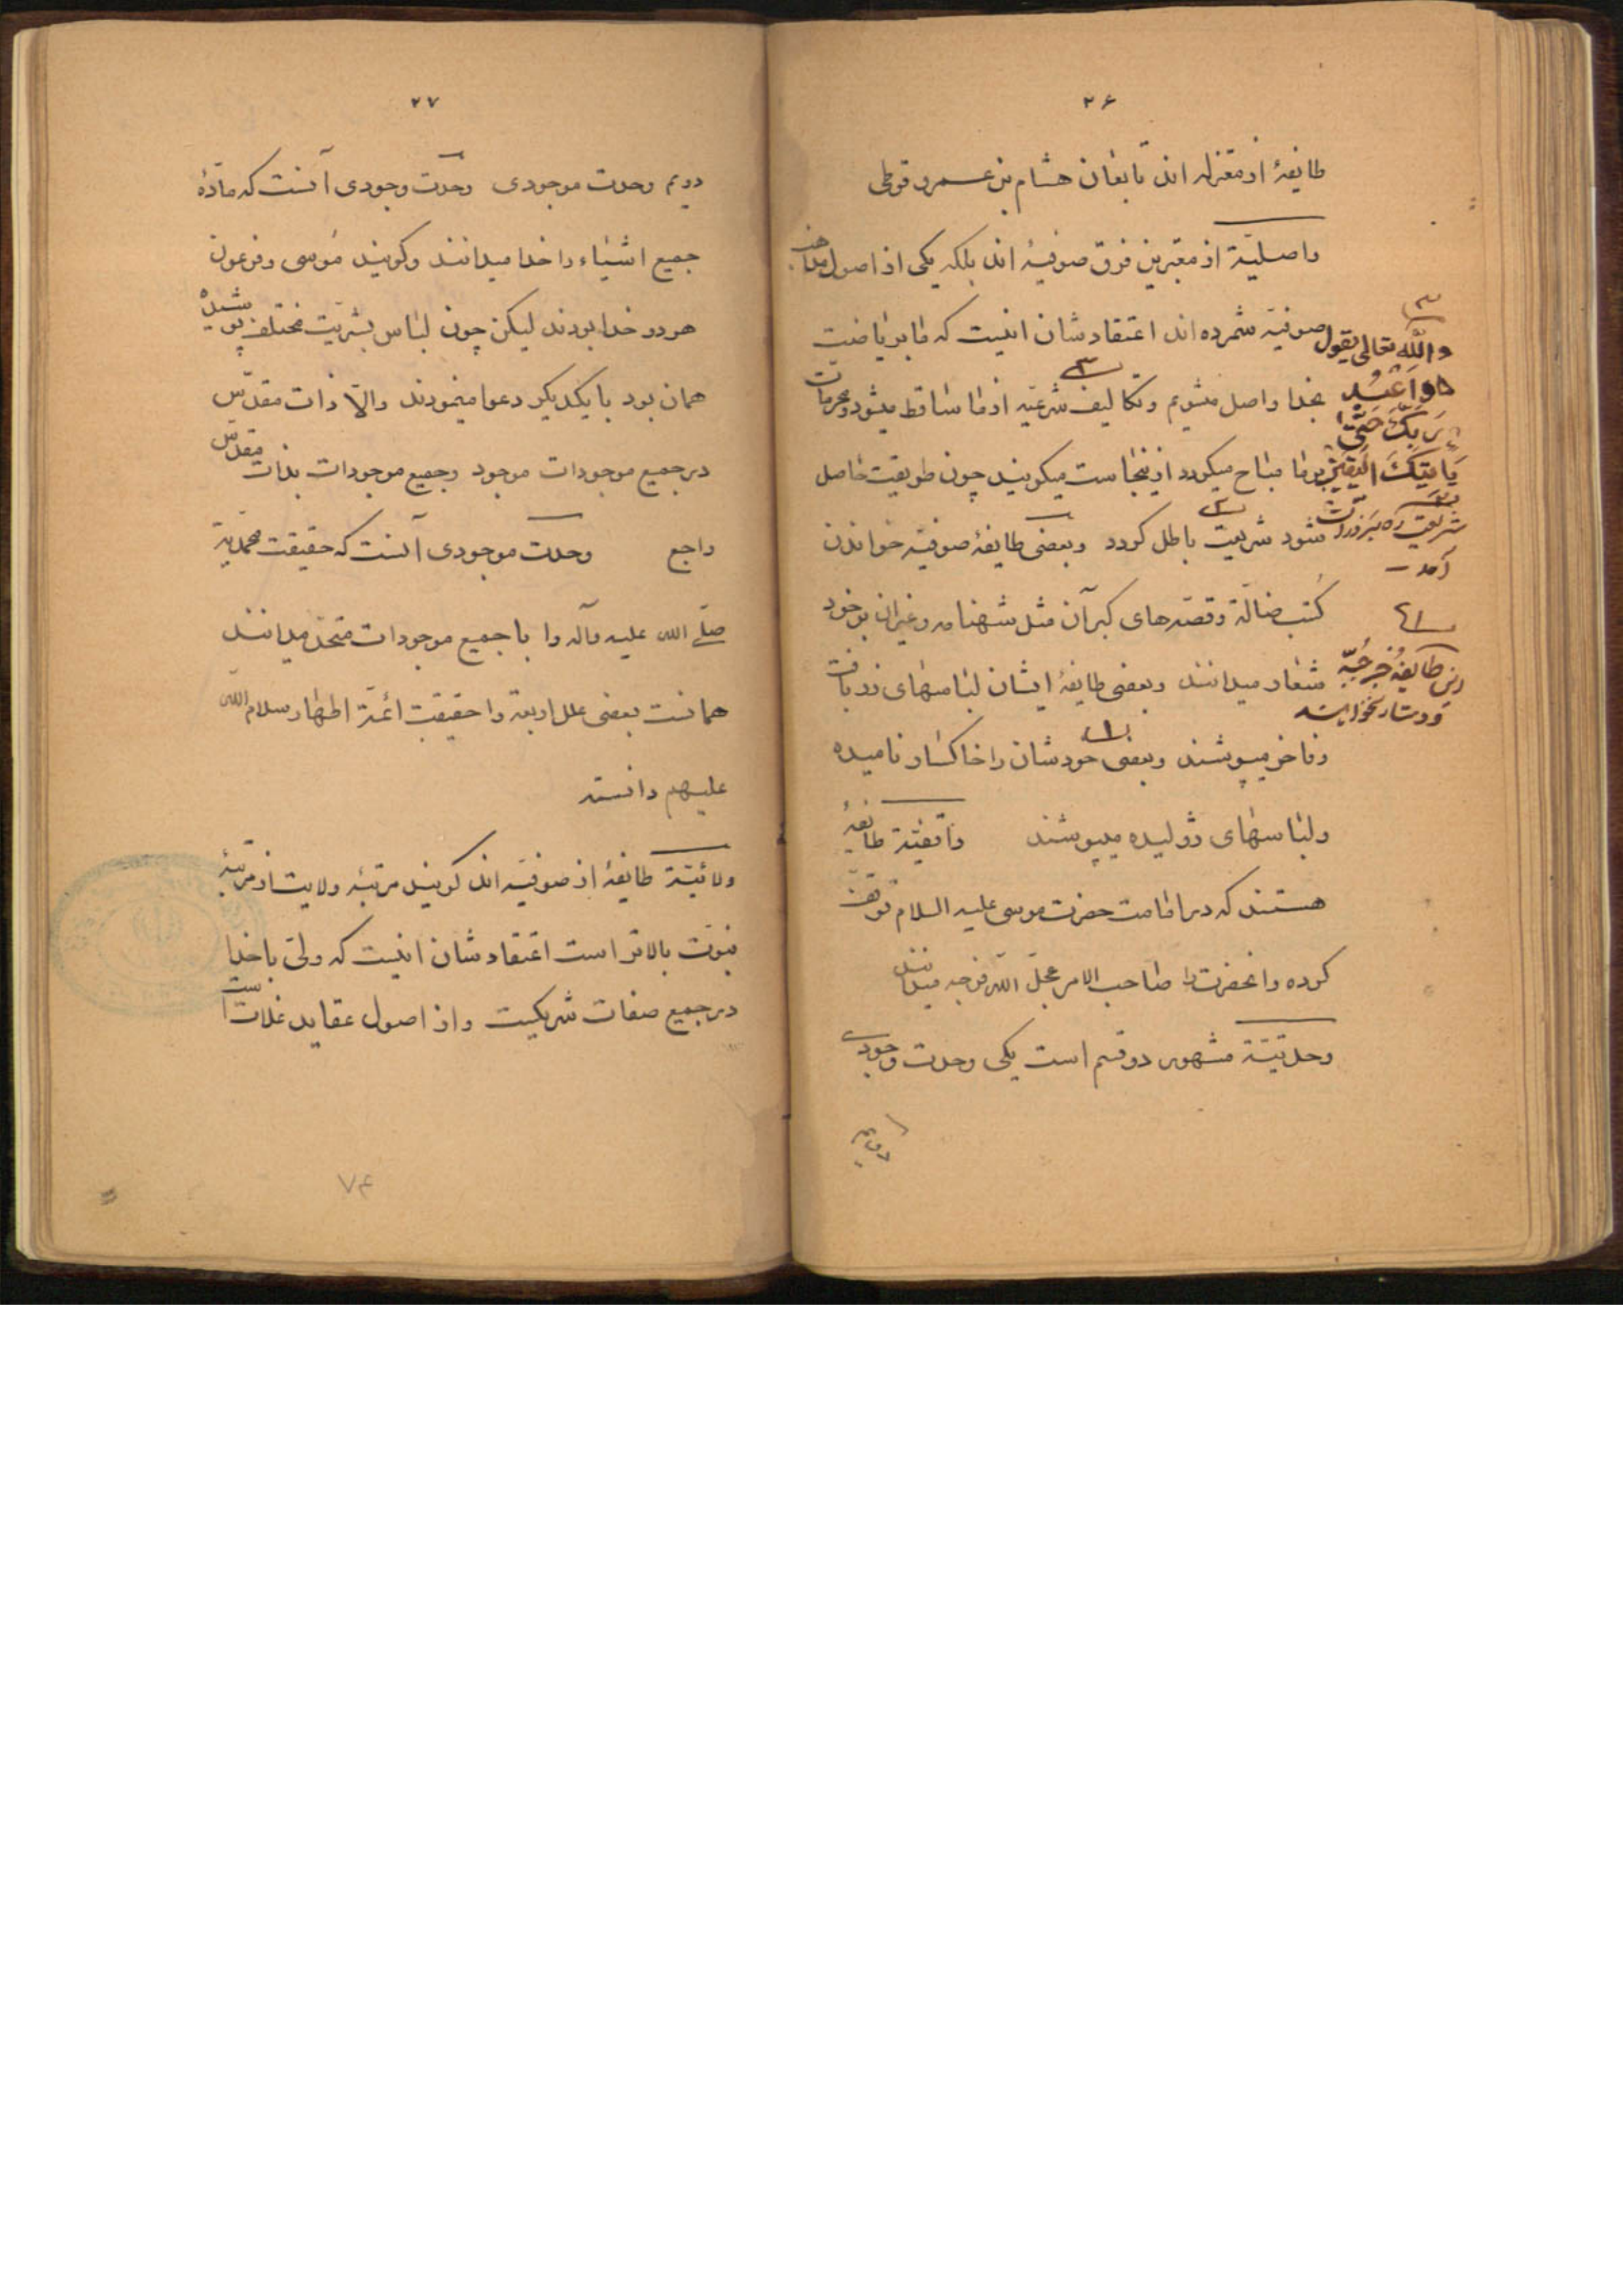 ۲۶
طایفهٔ از معتزله اند تابعان هشام بن عمرو فوطی
واصلیّة از معتبرین فرق صوفیهٔ اند بلکه یکی از اصول مذاهب
صوفیّه شمرده اند اعتقادشان اینست که ما بریاضت
بخدا واصل میشویم و تکالیف شرعیّه از ما ساقط میشود و محرمات
بر ما مباح میگردد از ینجاست میگویند چون طریقت حاصل
شود شریعت باطل گردد و بعضی طایفهٔ صوفیّه خواندن
کتب ضالّة و قصّه‌های کبرآن مثل شهنامه و غیران بر خود
شعار میدانند و بعضی طایفهٔ ایشان لباسهای زربافت
و فاخر میپوشند و بعضی خودشان را خاکسار نامیده
و لباسهای ژولیده میپوشند واقفیّة طایفهٔ
هستند که در امامت حضرت موسی علیه السلام توقّف
کرده و انحضرت را صاحب الامر عجّل اللّه فرجه میدانند
وحدتیّة مشهور دو قسم است یکی وحدت وجودی
دویم
۳
واللّه تعالی یقول
وَاعْبُد
رَبَّكَ حَتّیٰ
یَاْتِیَكَ الیَقین
۲
شریعت
آمد
۱
این طایفهٔ جز جبّه
و دستار نخواهند
۲۷
دویم وحدت موجودی وحدت وجودی آنست که مادّهٔ
جمیع اشیاء را خدا میدانند و گویند موسی و فرعون
هر دو خدا بودند لیکن چون لباس بشریّت مختلف پوشیده
همان بود با یکدیگر دعوا مینمودند والّا ذات مقدّس
در جمیع موجودات موجود و جمیع موجودات بذات مقدّس
راجع وحدت موجودی آنست که حقیقت محمدیّه
صلّی اللّه علیه و آله را با جمیع موجودات متّحد میدانند
همانست بعضی علل اربعة را حقیقت ائمّة اطهار سلام اللّه
علیهم دانسته
ولائیّة طایفهٔ از صوفیّه اند گویند مرتبهٔ ولایت از مرتبهٔ
نبوّت بالاتر است اعتقادشان اینست که ولیّ با خدا
در جمیع صفات شریکست و از اصول عقاید غلات است
۷۴